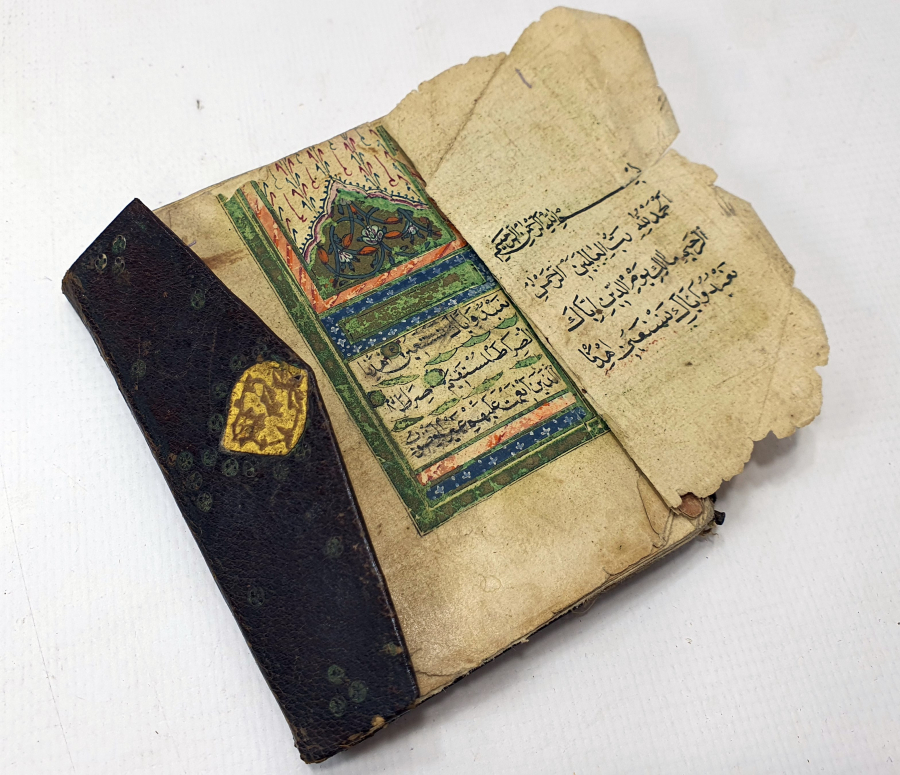 بِسْمِ اللهِ الرَّحْمٰنِ الرَّحِيمِ
اَلْحَمْدُ لِلّٰهِ رَبِّ الْعَالَمِينَ اَلرَّحْمٰنِ
الرَّحِيمِ مَالِكِ يَوْمِ الدِّينِ اِيَّاكَ
نَعْبُدُ وَاِيَّاكَ نَسْتَعِينُ اِهْدِنَا
نَعْبُدُ وَاِيَّاكَ نَسْتَعِينُ اِهْدِنَا
الصِّرَاطَ الْمُسْتَقِيمَ صِرَاطَ
الَّذِينَ اَنْعَمْتَ عَلَيْهِمْ غَيْرِ الْمَغْضُوبِ